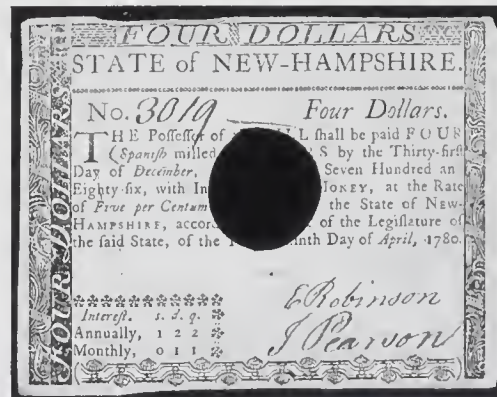 FOUR DOLLARS
STATE of NEW-HAMPSHIRE.
No. 3019 Four Dollars.
THE Poſſeſſor of LL ſhall be paid FOUR
(Spaniſh milled S by the Thirty-firſt
Day of December, Seven Hundred an
Eighty-ſix, with In MONEY, at the Rate
of Five per Centum the State of NEW-
HAMPSHIRE, accor of the Legiſlature of
the ſaid State, of the T inth Day of April, 1780.
Intereſt. s. d. q.
Annually, 1 2 2
Monthly, 0 1 1
E Robinson
J Pearson
FOUR DOLLARS